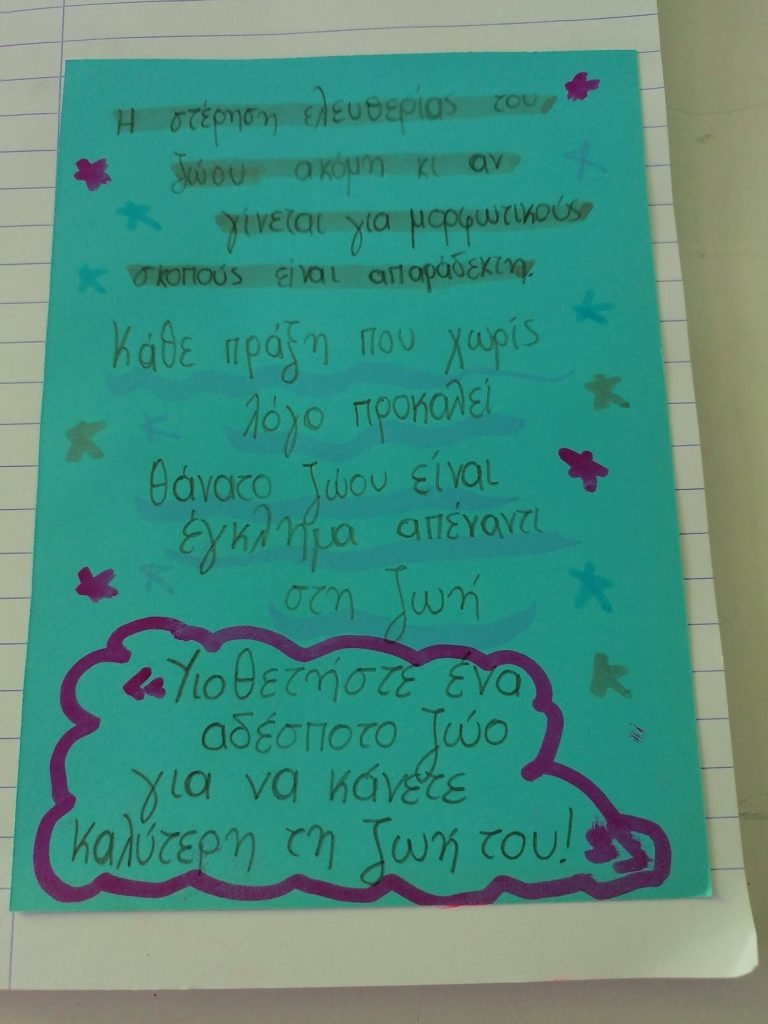 Η στέρηση ελευθερίας του
ζώου ακόμη κι αν
γίνεται για μορφωτικούς
σκοπούς είναι απαράδεκτη.
Κάθε πράξη που χωρίς
λόγο προκαλεί
θάνατο ζώου είναι
έγκλημα απέναντι
στη ζωή
«Υιοθετήστε ένα
αδέσποτο ζώο
για να κάνετε
καλύτερη τη ζωη του!»